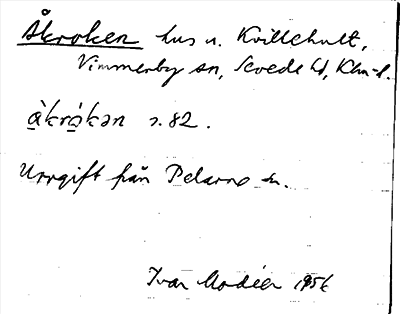 Åkroken hus u. Kvillehult,
Vimmerby sn, Sevede hd, Klm. l.
a̱`krɔ̱´kən s. 82.
Uppgift från Pelarne sn.
Ivar Modéer 1956